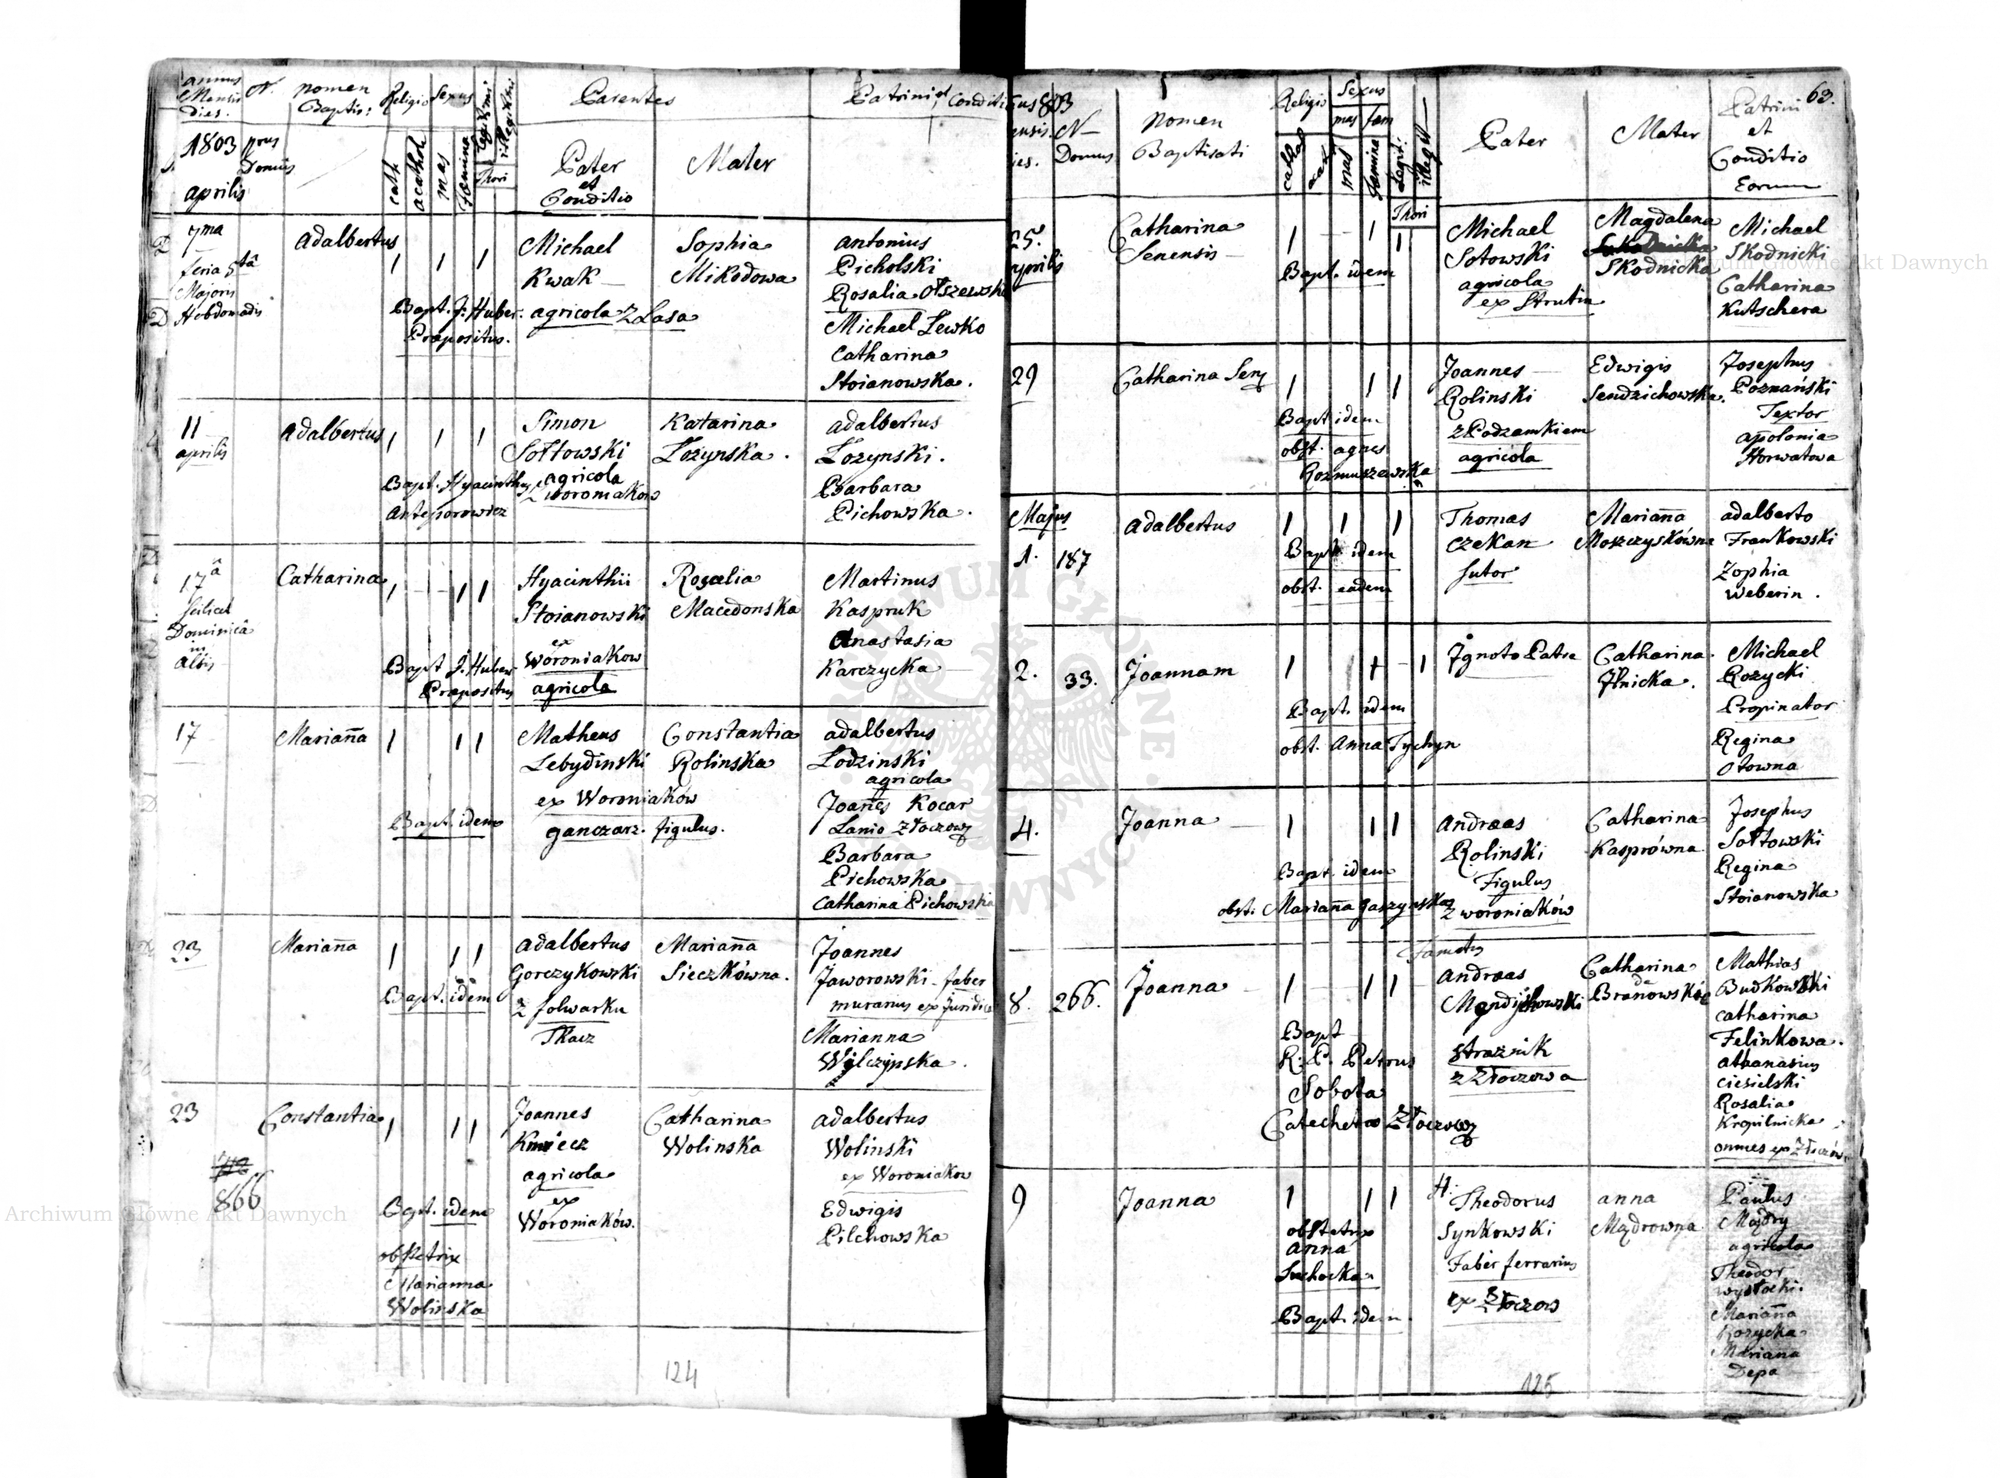 annus
Mensis
dies.
N.
nomen
Baptis:
Religio
Sexus
Legitimi
illegitimi
Parentes
Patrini et Conditi
1803
aprilis
nrus
Domus
cath
acathol
mas
fæmina
Thori
Pater
et
Conditio
Mater
7ma
feria 5tâ
Majoris
Hebdomadis
Adalbertus
1 1 1
Bapt. J. Huber.
Præpositus.
Michael
Kwak
agricola z Lasa
Sophia
Mikodowa
Antonius
Picholski
Rosalia Olszewska
Michael Lewko
Catharina
Stoianowska.
11
aprilis
Adalbertus
1 1 1
Bapt. Hyacinthus
Simon
Sołtowski
agricola
z Woroniakow
Katarina
Łozynska.
Adalbertus
Łozynski.
Barbara
Pichowska.
17â
scilicet
Dominicâ
in
Albis
Catharina
1 1 1
Bapt J. Huber
Præpositus
Hyacinthii
Stoianowski
ex
Woroniakow
agricola
Rosalia
Macedonska
Martinus
Kaspruk
Anastasia
Karczycka
17
Mariana
1 1 1
Bapt. idem
Matheus
Lebydinski
ex Woroniaków
ganczarz. figulus.
Constantia
Rolinska
adalbertus
Lodzinski
agricola
Joanes Kocar
Lanio Złoczow
Barbara
Pichowska
Catharina Pichowska
23
Mariana
1 1 1
Bapt. idem
Adalbertus
Gorczykowski
z folwarku
Tkacz
Mariana
Sieczkówna.
Joannes
Jaworowski faber
murarius ex Juridica
Marianna
Wilczynska.
23
866
Constantia
1 1 1
Bapt. idem
obstetrix
Marianna
Wolinska
Joannes
Kmiecz
agricola
ex
Woroniaków.
Catharina
Wolinska
adalbertus
Wolinski
ex Woroniakow
Edwigis
Pilchowska
124
63.
803
N
Domus
nomen
Baptisati
Religio
Sexus
mas fæm
cathol
mas
femina
Legit:
illegit
Thori
Pater
Mater
Patrini
et
Conditio
Eorum
25.
aprilis
Catharina
Senensis
1 1 1
Bapt. idem
Michael
Sotowski
agricola
ex Strutin
Magdalena
Skodnicka
Michael
Skodnicki
Catharina
Kutschera
29
Catharina Sen
1 1 1
Bapt idem
obst. agnes
Rozmuszewska
Joannes
Rolinski
z Podzamkiem
agricola
Edwigis
Sendzichowska.
Josephus
Poznański
Textor
apolonia
Horwatowa
Majus
1. 187
Adalbertus
1 1 1
Bapt idem
obst. eadem
Thomas
Czekan
sutor
Mariana
Moszczyskówna
adalberto
Frankowski
Zophia
Weberin.
2. 33.
Joannam
1 1 1
Bapt. idem
obst. Anna Tychyn
Ignoto Patre
Catharina
Ilnicka.
Michael
Rozycki
Propinator
Regina
Otowna
4.
Joanna
1 1 1
Bapt. idem
obst. Mariana Gaszynska
Andreas
Rolinski
Figulus
z Woroniaków
Catharina
Kasprówna
Josephus
Sołtowski
Regina
Stoianowska
8. 266.
Joanna
1 1 1
Bapt
R. P. Petrus
Sobota
Catecheta Złoczow
Andreas
Strażnik
z Złoczowa
Catharina
de
Branowskie
Mathias
Budkowski
catharina
Felinkowa.
athanasius
Ciesielski
Rosalia
Kropilnicka
omnes ex Złoczów
9
Joanna
1 1 1
obstetrix
anna
Suchocka
Bapt. idem.
Theodorus
Synkowski
Faber ferrarius
ex Złoczow
anna
Mądrowna
Paulus
Mądry
agricola
Theodor
Wysłocki
Mariana
Rozycka
Mariana
Depa
125
Archiwum Główne Akt Dawnych
Archiwum Główne Akt Dawnych
ARCHIWUM GŁÓWNE
AKT DAWNYCH